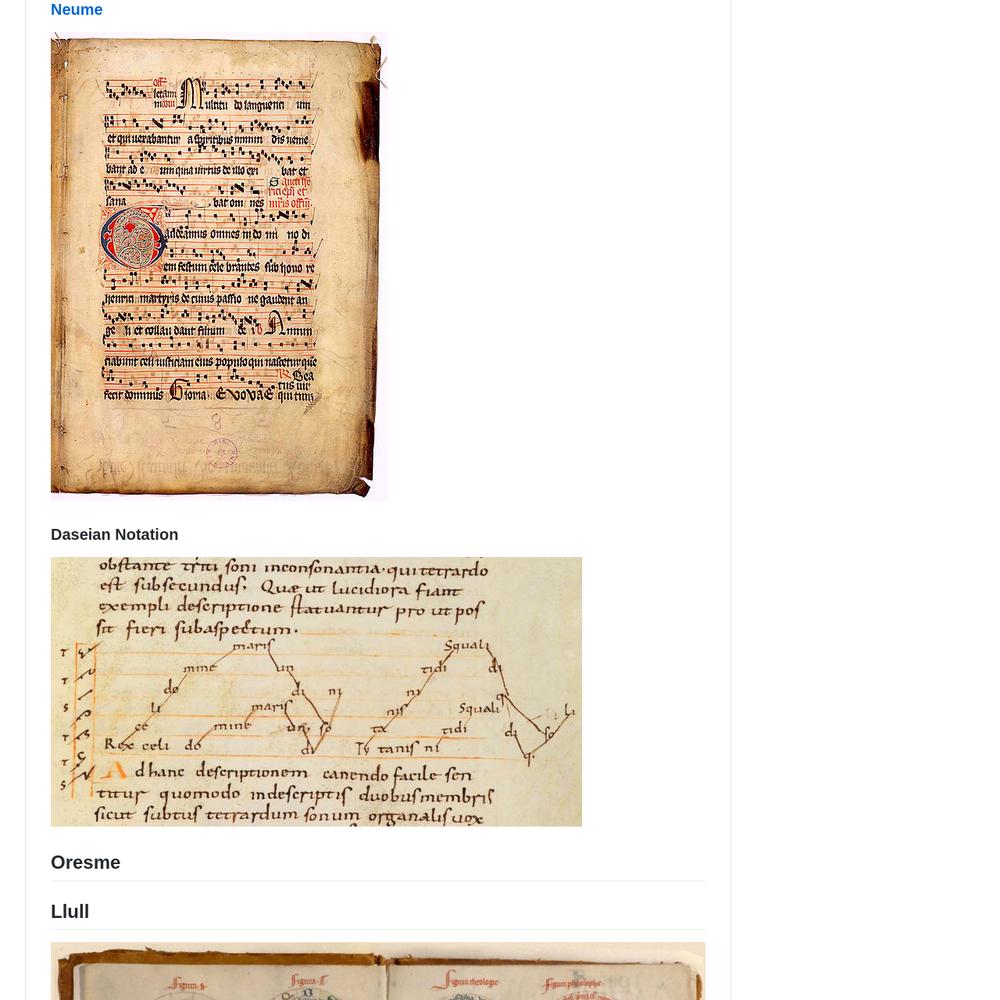 Neume
off
letam Multitu do languenti um
et qui vexabantur a spiritibus inmun dis venie
bant ad e um quia virtus de illo exi bat et
sana bat om nes
audeamus omnes in do mi no di
em festum cele brantes sub hono re
henrici martyris de cuius passio ne gaudent an
ge li et collau dant filium de i Annun
tiabunt celi iusticiam eius populo qui nascetur que
Bea
fecit dominus Gloria EVOVAE tus vir
qui tim
Daseian Notation
obstante triti soni inconsonantia. qui tetrardo
est subsecundus. Quæ ut lucidiora fiant
exempli descriptione statuantur pro ut pos
sit fieri subaspectum.
maris Squali
mine un tidi di
do di ni ni
li maris nis Squali li
ce mine so ta tidi di so
Rex celi do di Ty tanis ni q.
T
T
S
T
T
S
Ad hanc descriptionem canendo facile sen
titur quomodo indescriptis duobus membris
sicut subtus tetrardum sonum organalis vox
Oresme
Llull
figura S figura T figura theologie figura philosophie